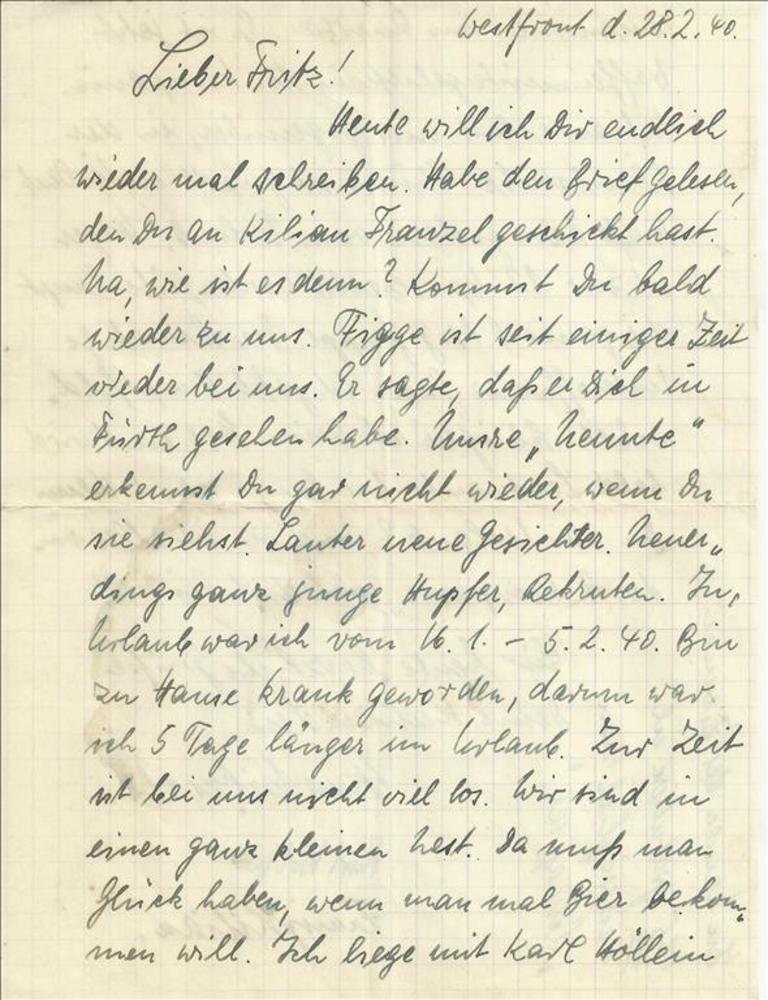 Westfront d. 28.2.40.
Lieber Fritz!
Heute will ich Dir endlich
wieder mal schreiben. Habe den Brief gelesen,
den Du an Kilian Franzel geschickt hast.
Na, wie ist es denn? Kommst Du bald
wieder zu uns. Figge ist seit einiger Zeit
wieder bei uns. Er sagte, daß er Dich in
Fürth gesehen habe. Unsre „Neunte“
erkennst Du gar nicht wieder, wenn Du
sie siehst. Lauter neue Gesichter. Neuer„
dings ganz junge Hupfer, Rekruten. In,
Urlaub war ich vom 16. 1. – 5. 2. 40. Bin
zu Hause krank geworden, darum war
ich 5 Tage länger im Urlaub. Zur Zeit
ist bei uns nicht viel los. Wir sind in
einen ganz kleinen Nest. Da muß man
Glück haben, wenn man mal Bier bekom„
men will. Ich liege mit Karl Höllein